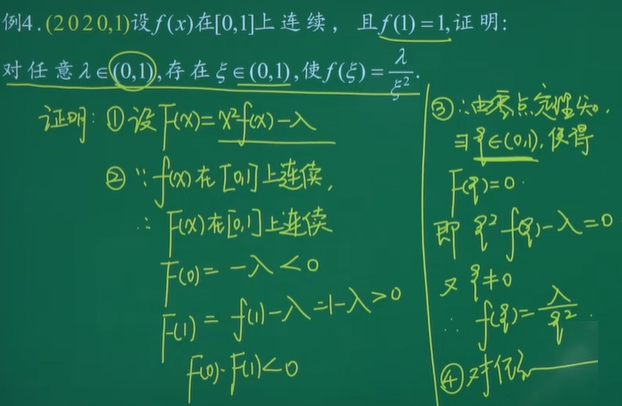 例4.(2020,1)设f(x)在[0,1]上连续，且f(1)=1,证明:
对任意λ∈(0,1),存在ξ∈(0,1),使f(ξ)=λ/ξ².
证明: ①设F(x)=x²f(x)-λ
②∵f(x)在[0,1]上连续,
∴F(x)在[0,1]上连续
F(0)=-λ<0
F(1)=f(1)-λ=1-λ>0
F(0)·F(1)<0
③∴由零点定理知,
∃ξ∈(0,1),使得
F(ξ)=0.
即ξ²f(ξ)-λ=0
又ξ≠0
∴f(ξ)=λ/ξ².
④对